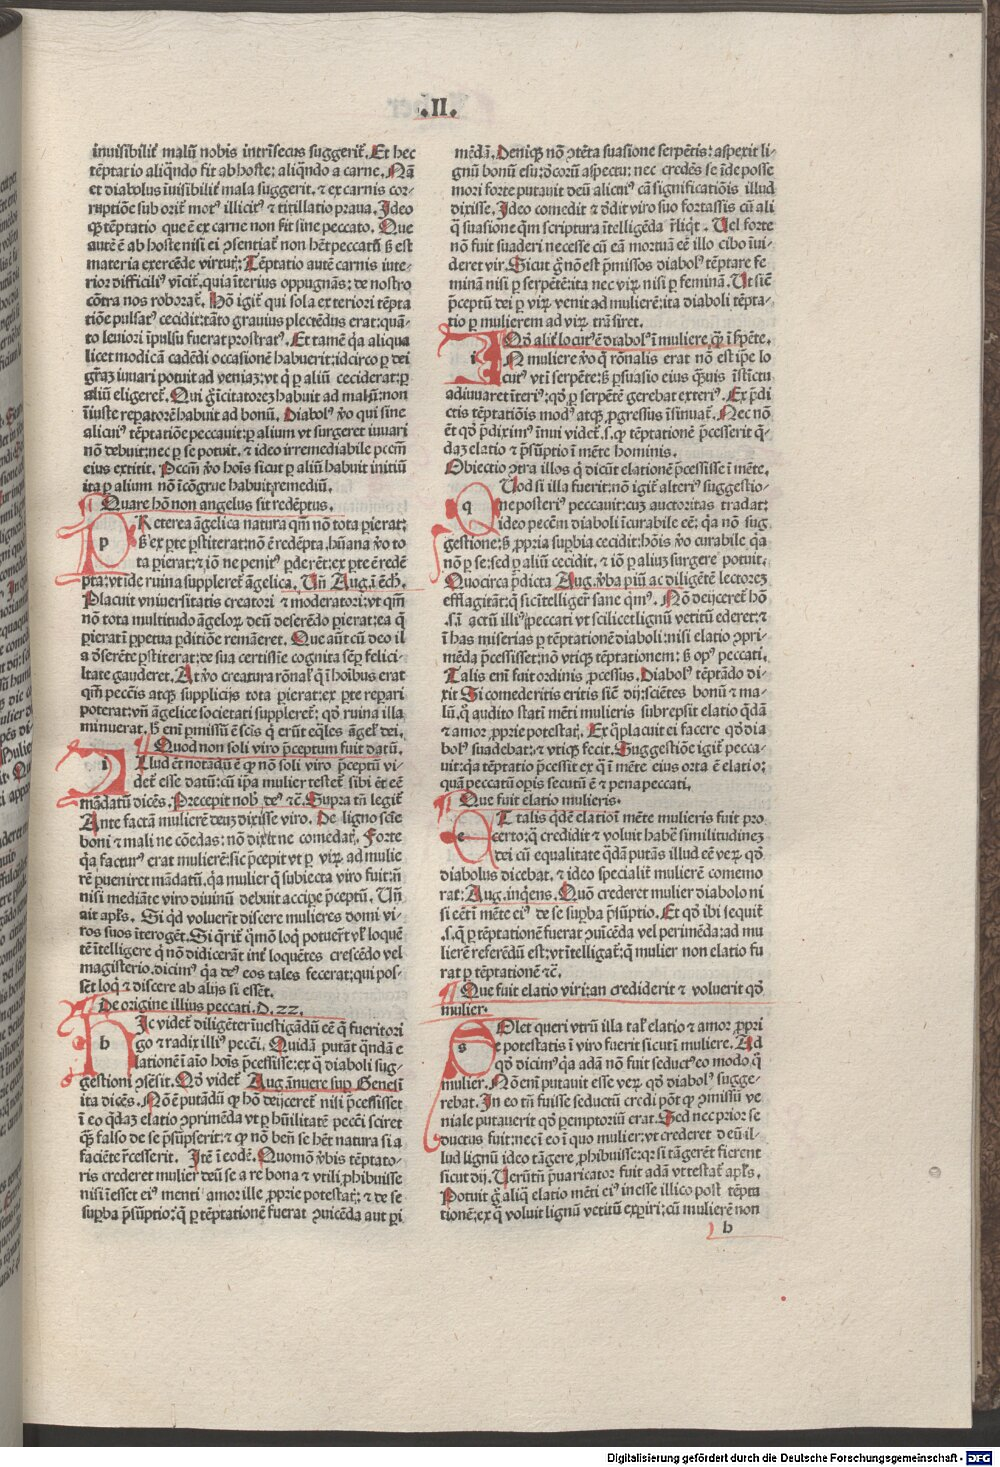 .II.
inuisibilit᷑ malũ nobis intrĩsecus suggerit᷑. Et hec
tẽptatio aliqñdo fit ab hoste: aliqñdo a carne. Nã
et diabolus ĩuisibilit᷑ mala suggerit. ⁊ ex carnis cor-
ruptiõe sub orit᷑ mot⁹ illicit⁹ ⁊ titillatio praua. Ideo
tẽptatio que ẽ ex carne non fit sine peccato. Que
autẽ ẽ ab hoste nisi ei ɔsentiat᷑ non hẽt peccatũ s̃ est
materia exercẽde virtut᷑: Tẽptatio autẽ carnis inte-
rior difficili⁹ vĩcit᷑, quia ĩterius oppugnãs: de nostro
cõtra nos roborat᷑. Hõ igit᷑ qui sola exteriori tẽpta
tiõe pulsat⁹ cecidit: tãto grauius plectẽdus erat: quã-
to leuiori ĩpulsu fuerat prostrat⁹. Et tamẽ q̃a aliqua
licet modicã cadẽdi occasionẽ habuerit: idcirco p dei
gr̃az iuuari potuit ad veniaz: vt q̃ p aliũ ceciderat: p
aliũ eligeret᷑. Qui g̃ ĩcitatorez habuit ad malũ: non
ĩiuste reparatorẽ habuit ad bonũ. Diabol⁹ ṽo qui sine
alicui⁹ tẽptatiõe peccauit: p alium vt surgeret iuuari
nõ debuit: nec p se potuit. ⁊ ideo irremediabile pccm̃
eius extitit. Pccm̃ ṽo hoĩs sicut p aliũ habuit initiũ
ita p alium nõ ĩcõgrue habuit remediũ.
Quare hõ non angelus sit redẽptus.
p Reterea ãgelica natura qm̃ nõ tota pierat:
s̃ ex pte pstiterat: nõ ẽ redẽpta. hũana ṽo to
ta pierat: ⁊ iõ ne penit⁹ pderẽt: ex pte ẽ redẽ
pta: vt ĩde ruina suppleret᷑ ãgelica. Uñ Aug. ĩ ẽch.
Placuit vniuersitatis creatori ⁊ moderatori: vt qm̃
nõ tota multitudo ãgeloꝝ deũ deserẽdo pierat: ea q̃
pieratĩ ppetua pditiõe remãneret. Que aũt cũ deo il
la dẽserẽte pstiterat: de sua certissĩe cognita sẽp felici-
tate gauderet. At ṽo creatura rõnal᷑ q̃ ĩ hoĩbus erat
qm̃ peccĩs atqꝫ supplicijs tota pierat: ex pte repari
poterat: vñ ãgelice societati suppleret᷑: qõ ruina illa
minuerat. h̃ enĩ pmissũ ẽ scĩs q̃ erũt eq̃les ãgel᷑ dei.
Quod non soli viro p̃ceptum fuit datũ.
i Llud et notãdũ ẽ ꝙ nõ soli viro p̃ceptũ vi-
det᷑ esse datũ: cũ ip̃a mulier testet᷑ sibi ẽt eẽ
mãdatũ dicẽs. Precepit nob̃ de⁹ ⁊c̃. Supra tñ legit᷑
Ante factã mulierẽ deuz dixisse viro. De ligno scĩe
boni ⁊ mali ne cõedas: nõ dixit ne comedat᷑. Forte
q̃a factur⁹ erat mulierẽ: sic p̃cepit vt p viꝝ ad mulie
rẽ pueniret mãdatũ. q̃a mulier q̃ subiecta viro fuit: ñ
nisi mediãte viro diuinũ debuit accipe p̃ceptũ. Uñ
ait apl̃s. Si q̃d voluerĩt discere mulieres domi vi-
ros suos ĩterogẽt. Si q̃rit᷑ q̃mõ loq̃ potuer̃t vl᷑ loquẽ
tẽ ĩtelligere q̃ nõ didicerãt int᷑ loquẽtes crescẽdo vel
magisterio. dicim⁹ q̃a de⁹ eos tales fecerat: qui pos-
sẽt loq̃ ⁊ discere ab alijs si essẽt.
De origine illius peccati. D. 22.
h Ic videt᷑ diligẽter ĩuestigãdũ eẽ q̃ fuerit ori
go ⁊ radix illi⁹ pecc̃i. Quidã putãt q̃ndã e
lationẽ ĩ aĩo hoĩs p̃cessisse: ex q̃ diaboli sug-
gestioni ɔsẽsit. Qõ videt᷑ Aug. ãnuere sup Genesĩ
ita dicẽs. Nõ ẽ putãdũ ꝙ hõ deijceret᷑ nisi p̃cessisset
ĩ eo q̃daz elatio ɔprimẽda vt p hũilitatẽ peccĩ sciret
q̃ falso de se p̃sũpserit: ⁊ ꝙ nõ beñ se hẽt natura si a
faciẽte r̃cesserit. Itẽ ĩ eodẽ. Quomõ ṽbis tẽptato-
ris crederet mulier deũ se a re bona ⁊ vtili phibuisse
nisi ĩesset ei⁹ menti amor ille pprie potestat᷑: ⁊ de se
supba p̃sũptio: q̃ p tẽptationẽ fuerat ɔuicẽda aut pi
mẽdã. Deniqꝫ nõ ɔtẽta suasione serpẽtis: aspexit li-
gnũ bonũ esu: dẽcorũ aspectu: nec credẽs se ĩde posse
mori forte putauit deũ alicui⁹ cã significatiõis illud
dixisse. Ideo comedit ⁊ dẽdit viro suo fortassis cũ ali
q̃ suasione q̃m scriptura ĩtelligẽda r̃liq̃t. Uel forte
nõ fuit suaderi necesse cũ eã mortuã eẽ illo cibo ĩui-
deret vir. Sicut g̃ nõ est p̃missos diabol⁹ tẽptare fe
minã nisi p serpẽtẽ: ita nec viꝝ nisi p feminã. Ut siẽ
p̃ceptũ dei p viꝝ venit ad mulierẽ: ita diaboli tẽpta-
tio p mulierem ad viꝝ trãsiret.
Qõ alit᷑ locut⁹ ẽ diabol⁹ ĩ muliere ꝙ ĩ s̃pẽte.
i N muliere ṽo q̃ rõnalis erat nõ est ip̃e lo
cut⁹ vt ĩ serpẽte: s̃ psuasio eius q̃uis ĩstĩctu
adiuuaret ĩteri⁹: qõ p serpẽtẽ gerebat exteri⁹. Ex p̃di
ctis tẽptatiõis mod⁹ atqꝫ pgressus ĩsinuat᷑. Nec nõ
ẽt qõ p̃dixim⁹ ĩnui videt᷑. s. ꝙ tẽptationẽ p̃cesserit q̃-
daz elatio ⁊ p̃sũptio ĩ mẽte hominis.
Obiectio ɔtra illos q̃ dicũt elationẽ p̃cessisse ĩ mẽte.
q Uod si illa fuerit: nõ igit᷑ alteri⁹ suggestio-
ne posteri⁹ peccauit: cuz auctoritas tradat:
ideo peccm̃ diaboli ĩcurabile eẽ: q̃a nõ sug
gestione: s̃ ppria supbia cecidit: hoĩs ṽo curabile q̃a
nõ p se: sed p aliũ cecidit. ⁊ iõ p aliuz surgere potuit.
Quocirca p̃dicta Aug. ṽba piũ ac diligẽtẽ lectorez
efflagitãt: q̃ sic ĩtelliget᷑ sane q̃m⁹. Nõ deijceret᷑ hõ
.s. ĩ actũ illi⁹ peccati vt scilicet lignũ vetitũ ederet: ⁊
ĩ has miserias p tẽptationẽ diaboli: nisi elatio ɔpri-
mẽda p̃cessisset: nõ vtiqꝫ tẽptationem: s̃ op⁹ peccati.
Talis enĩ fuit ordinis pcessus. Diabol⁹ tẽptãdo di-
xit Si comederitis eritis siẽ dij: sciẽtes bonũ ⁊ ma-
lũ. q̃ audito statĩ mẽti mulieris subrepsit elatio q̃dã
⁊ amor pprie potestat᷑. Ex q̃ placuit ei facere qõ dia
bol⁹ suadebat: ⁊ vtiqꝫ fecit. Suggestiõe igit᷑ pecca-
uit: q̃a tẽptatio p̃cessit ex q̃ ĩ mẽte eius orta ẽ elatio:
quã peccatũ opis secutũ ẽ ⁊ pena peccati.
Que fuit elatio mulieris.
e T talis q̃dẽ elatio ĩ mẽte mulieris fuit pro
certo: q̃ credidit ⁊ voluit habẽ similitudinez
dei cũ equalitate q̃dã putãs illud eẽ veꝝ qõ
diabolus dicebat. ⁊ ideo specialit᷑ mulierẽ comemo
rat: Aug. inq̃ens. Quõ crederet mulier diabolo ni
si eẽt ĩ mẽte ei⁹ de se supba p̃sũptio. Et qõ ibi sequit᷑
.s. q̃ p tẽptationẽ fuerat ɔuicẽda vel perimẽda: ad mu
lierẽ referẽdũ est: vt ĩtelligat᷑: q̃ mulier non elatio fu
rat p tẽptationẽ ⁊c̃.
Que fuit elatio viri: an crediderit ⁊ voluerit qõ
mulier.
s Olet queri vtrũ illa tal᷑ elatio ⁊ amor ppri
e potestatis ĩ viro fuerit sicut ĩ muliere. Ad
qõ dicim⁹ q̃a adã nõ fuit seduct⁹ eo modo q̃
mulier. Nõ enĩ putauit esse veꝝ qõ diabol⁹ sugge-
rebat. In eo tñ fuisse seductũ credi põt ꝙ ɔmissũ ve
niale putauerit qõ pemptoriũ erat. Sed nec prior se
ductus fuit: nec ĩ eo ĩ quo mulier: vt crederet deũ il-
lud lignũ ideo tãgere phibuisse: qꝛ si tãgerẽt fierent
sicut dij. Uerũtñ p̃uaricator fuit adã vt testat᷑ apl̃s.
Potuit g̃ aliq̃ elatio mẽti ei⁹ inesse illico post tẽpta
tionẽ: ex q̃ voluit lignũ vetitũ expiri: cũ mulierẽ non
b
Digitalisierung gefördert durch die Deutsche Forschungsgemeinschaft - DFG